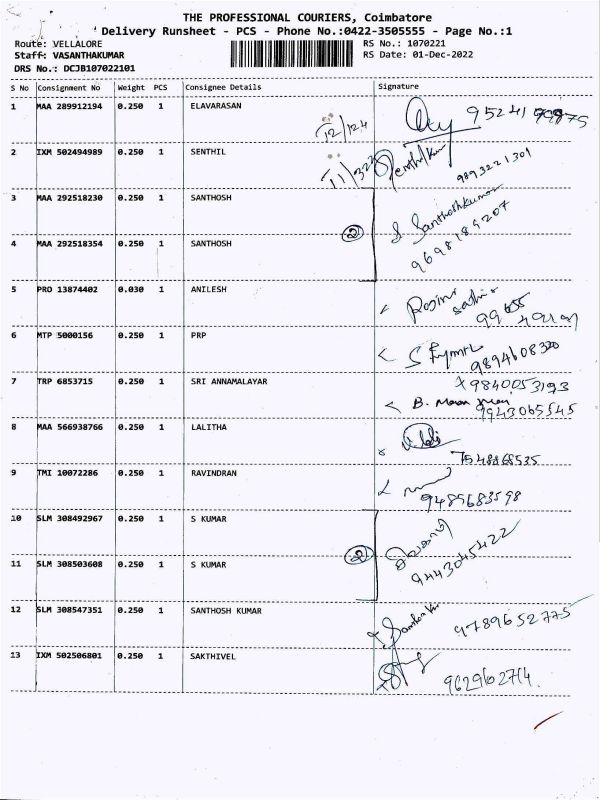 THE PROFESSIONAL COURIERS, Coimbatore
Delivery Runsheet - PCS - Phone No.:0422-3505555 - Page No.:1
Route: VELLALORE RS No.: 1070221
Staff: VASANTHAKUMAR RS Date: 01-Dec-2022
DRS No.: DCJB107022101
S No Consignment No Weight PCS Consignee Details Signature
1 MAA 289912194 0.250 1 ELAVARASAN
12/124
2 IXM 502494989 0.250 1 SENTHIL
11/322 Senthil Kumar 9893221301
3 MAA 292518230 0.250 1 SANTHOSH
S Santhoshkumar
2
4 MAA 292518354 0.250 1 SANTHOSH
9698189207
5 PRO 13874402 0.030 1 ANILESH
6 MTP 5000156 0.250 1 PRP
9894608320
7 TRP 6853715 0.250 1 SRI ANNAMALAYAR
9840053193
9943065545
8 MAA 566938766 0.250 1 LALITHA
7548868535
9 TMI 10072286 0.250 1 RAVINDRAN
9489683598
10 SLM 308492967 0.250 1 S KUMAR
2
11 SLM 308503608 0.250 1 S KUMAR
9443045422
12 SLM 308547351 0.250 1 SANTHOSH KUMAR
9789652775
13 IXM 502506801 0.250 1 SAKTHIVEL
962962714.